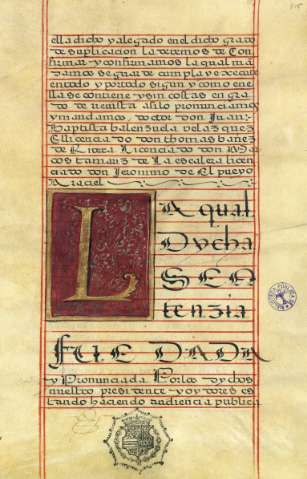 ella dicho y alegado en el dicho grado
de suplicacion la devemos de Con
firmar y confirmamos la qual ma
damos se guarde cumpla y execute
en todo y por todo sigun y como en e
lla se contiene y sin costas en gra
do de revista asi lo pronunciamos
y mandamos, doctor don Juan
Baptista balenzuela velazquez
El licenciado don thomas bañez
de Rivera Licenciado don Mar
cos tamariz de La escalera licen
ciado don Jeronimo de El pueyo
Araciel
LA qual
Dycha
SEN
tenzia
FUE DADA
y Pronunciada Por los dychos
nuestro presidente y oydores es
tando haciendo audiencia publica